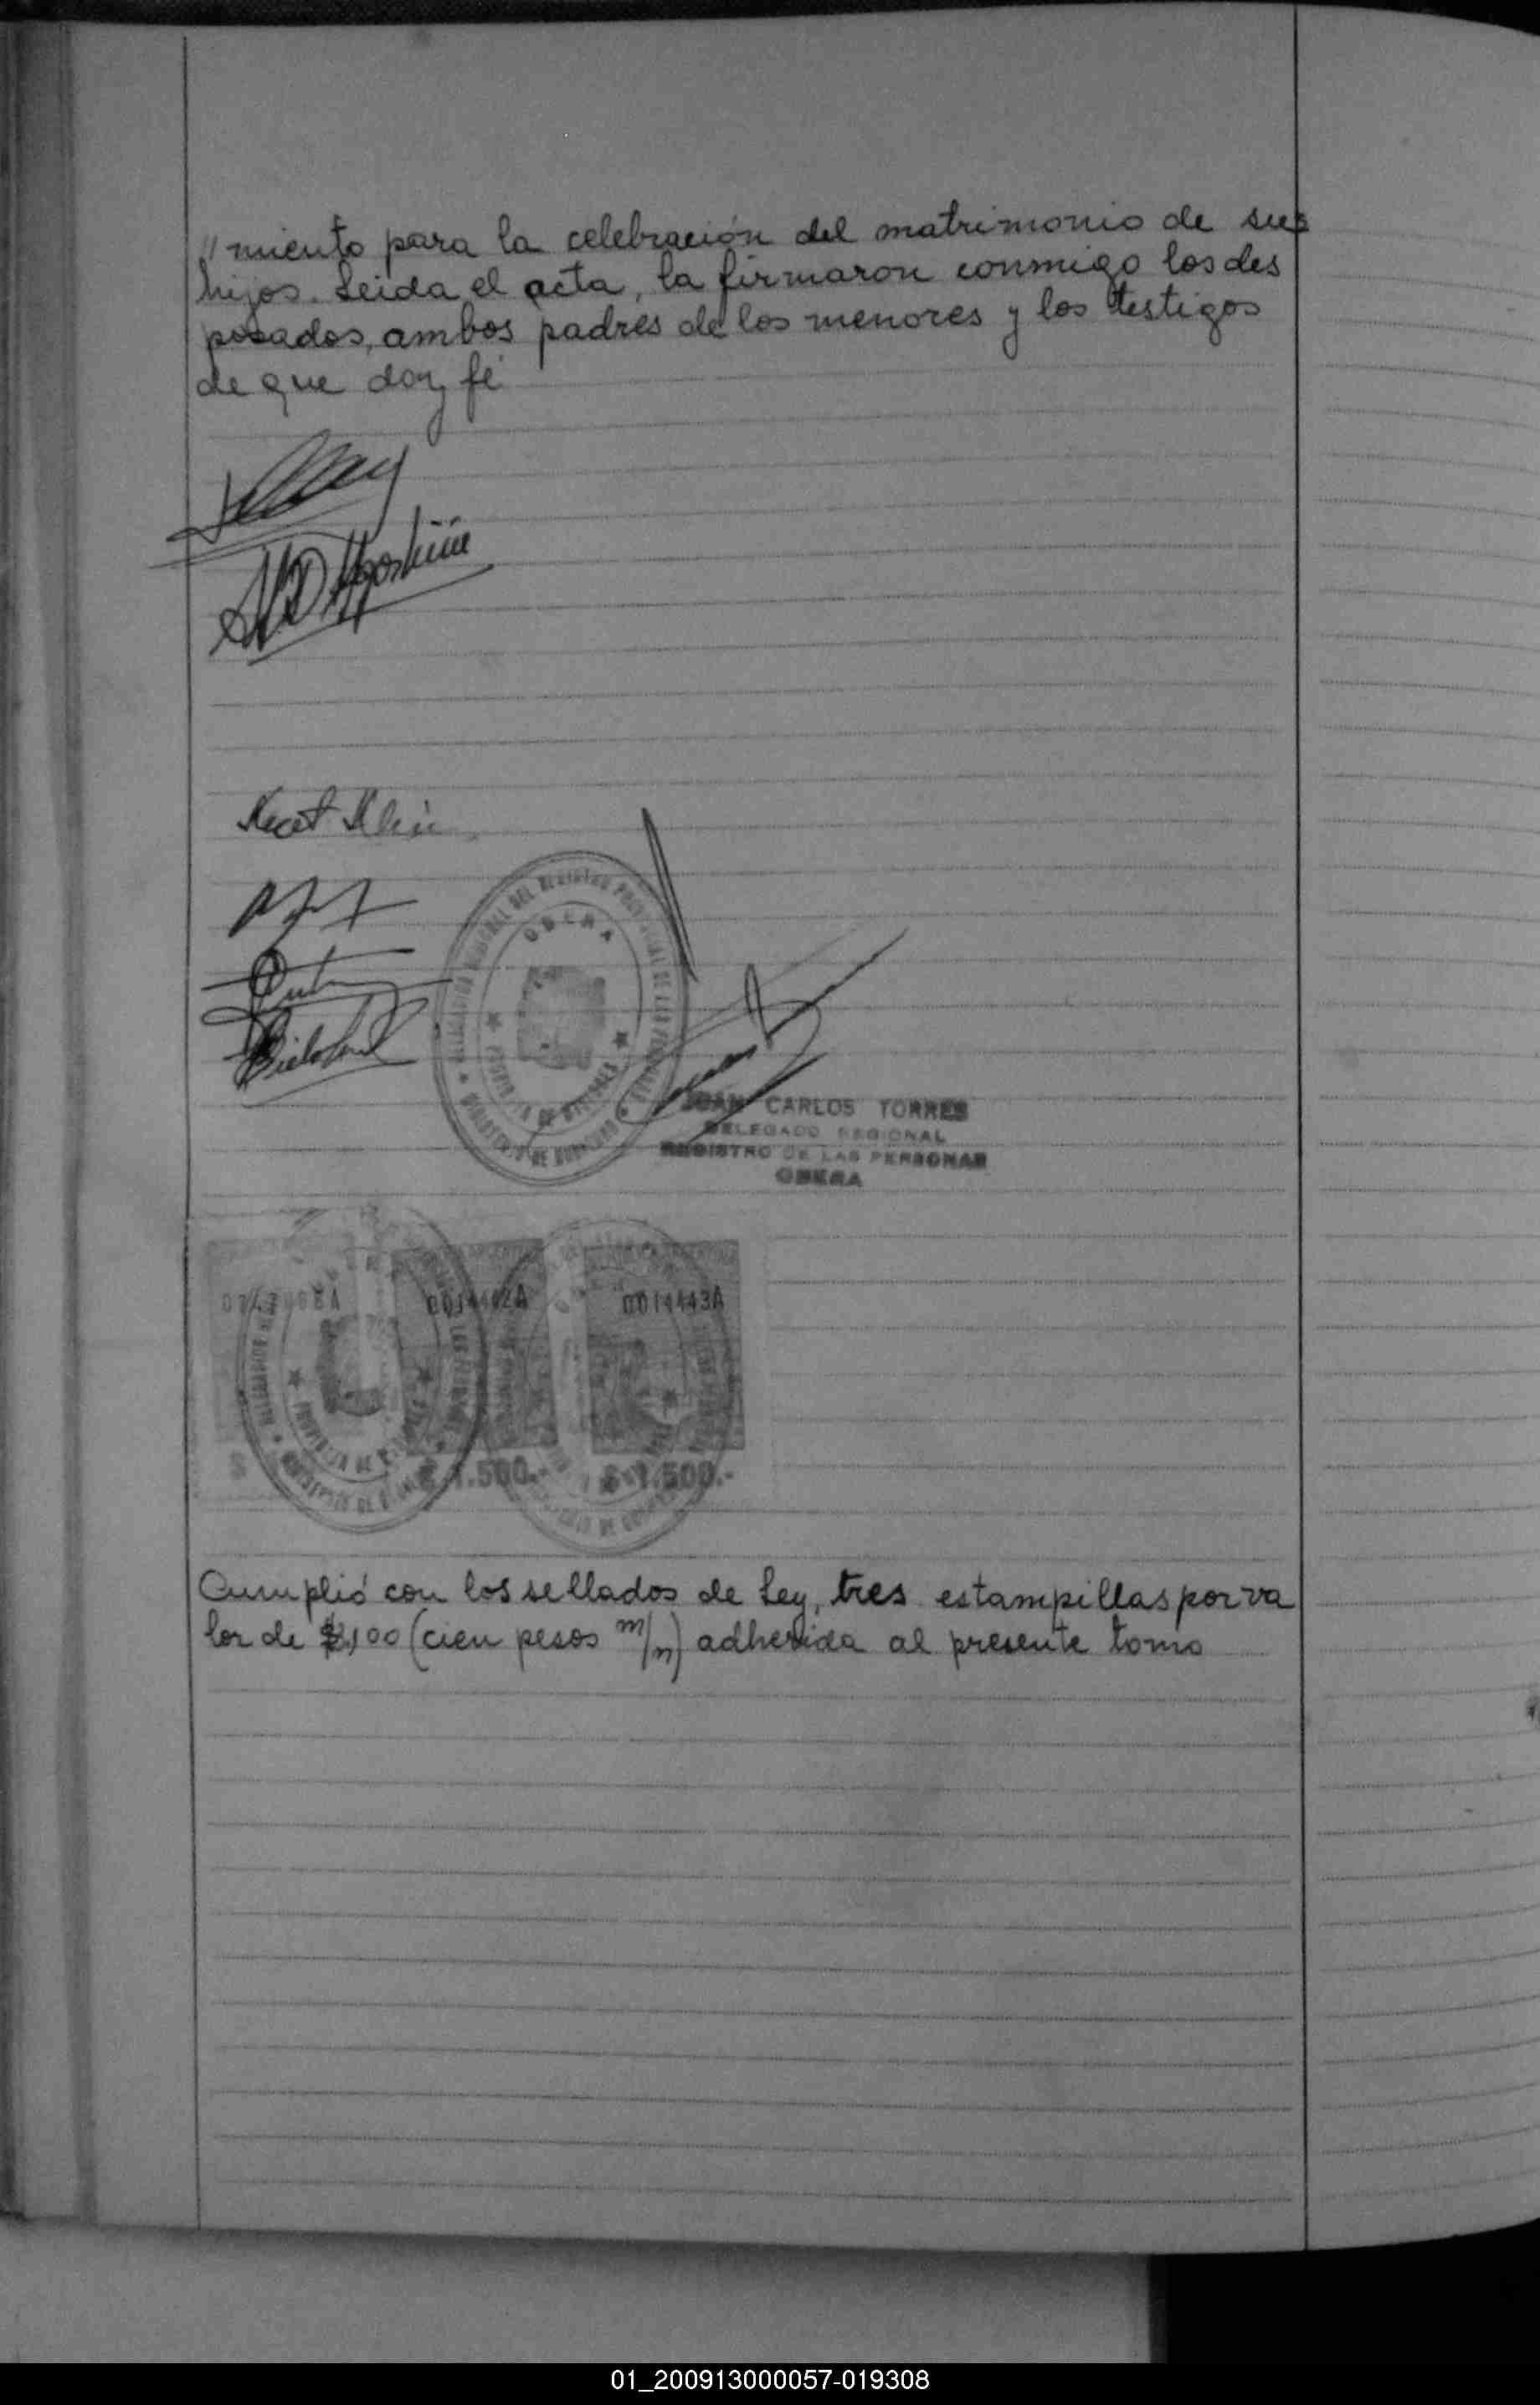 "miento para la celebración del matrimonio de sus
hijos. Leida el acta, la firmaron conmigo los des
posados, ambos padres de los menores y los testigos
de que doy fé
Agostini
OBERA
PROVINCIA DE MISIONES
JUAN CARLOS TORRES
DELEGADO REGIONAL
REGISTRO DE LAS PERSONAS
OBERA
0014442A
0014443A
$ 1.500.-
$ 1.500.-
Cumplió con los sellados de Ley, tres estampillas por va
lor de (cien pesos m/n) adherida al presente tomo
01_200913000057-019308